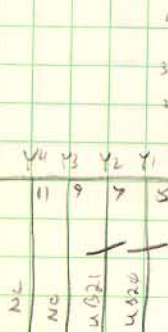 Y4 Y3 Y2 Y1
11 9 7
NC
NC
UB21
UB20